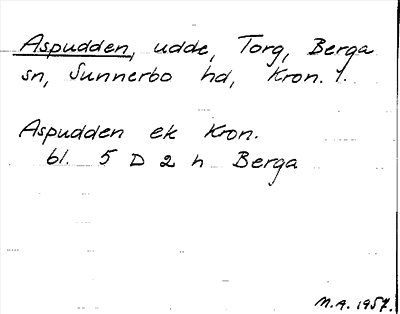 Aspudden, udde, Torg, Berga
sn, Sunnerbo hd, Kron. l.
Aspudden ek Kron.
bl. 5 D 2 h Berga
M.A. 1957.